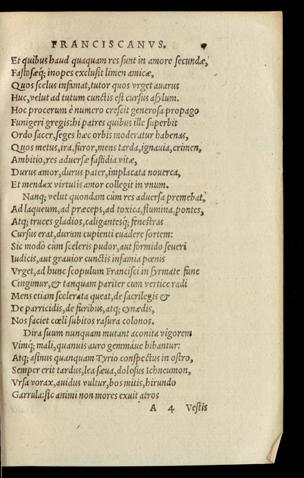 FRANCISCANVS.
Et quibus haud quaquam res sunt in amore secundæ,
Fastosæq; inopes exclusit limen amicæ,
Quos scelus infamat, tutor quos vrget auarus
Huc, velut ad tutum cunctis est cursus asylum.
Hoc procerum è numero crescit generosa propago
Funigeri gregis: hi patres quibus ille superbit
Ordo sacer, seges hæc orbis moderatur habenas,
Quos metus, ira, furor, mens tarda, ignauia, crimen,
Ambitio, res aduersæ fastidia vitæ,
Durus amor, durus pater, implacata nouerca,
Et mendax virtutis amor collegit in vnum.
Nanq; velut quondam cùm res aduersa premebat,
Ad laqueum, ad præceps, ad toxica, flumina, pontes,
Atq; truces gladios, caligantesq; fenestras
Cursus erat, duram cupienti euadere sortem:
Sic modò cùm sceleris pudor, aut formido seueri
Iudicis, aut grauior cunctis infamia pœnis
Vrget, ad hunc scopulum Francisci in syrmate fune
Cingimur, & tanquam pariter cum vertice radi
Mens etiam scelerata queat, de sacrilegis &
De parricidis, de furibus, atq; cynædis,
Nos faciet cœli subitos rasura colonos.
Dira suum nunquam mutant aconita vigorem
Vimq; mali, quanuis auro gemmáue bibantur:
Atq; asinus quanquam Tyrio conspectus in ostro,
Semper erit tardus, lea sæua, dolosus Ichneumon,
Vrsa vorax, auidus vultur, bos mitis, hirundo
Garrula: sic animi non mores exuit atros
A 4 Vestis